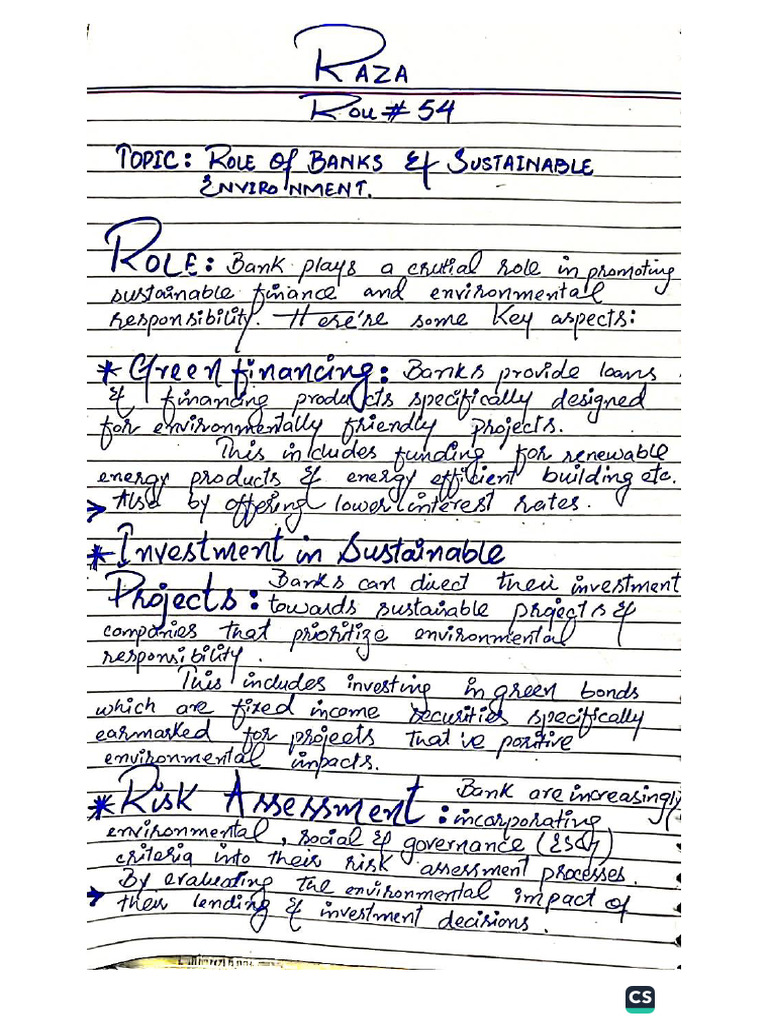 RAZA
Roll # 54
TOPIC: ROLE OF BANKS & SUSTAINABLE
ENVIRONMENT.
ROLE: Bank plays a crutial role in promoting
sustainable finance and environmental
responsibility. Here're some Key aspects:
* Green financing: Banks provide loans
& financing products specifically designed
for environmentally friendly projects.
This includes funding for renewable
energy products & energy efficient building etc.
→ Also by offering lower interest rates.
* Investment in Sustainable
Projects: Banks can direct their investment
towards sustainable projects &
companies that prioritize environmental
responsibility.
This includes investing in green bonds
which are fixed income securities specifically
earmarked for projects that've positive
environmental impacts.
* Risk Assessment: Bank are increasingly
incorporating
environmental, social & governance (ESG)
criteria into their risk assessment processes.
→ By evaluating the environmental impact of
their lending & investment decisions.
CS